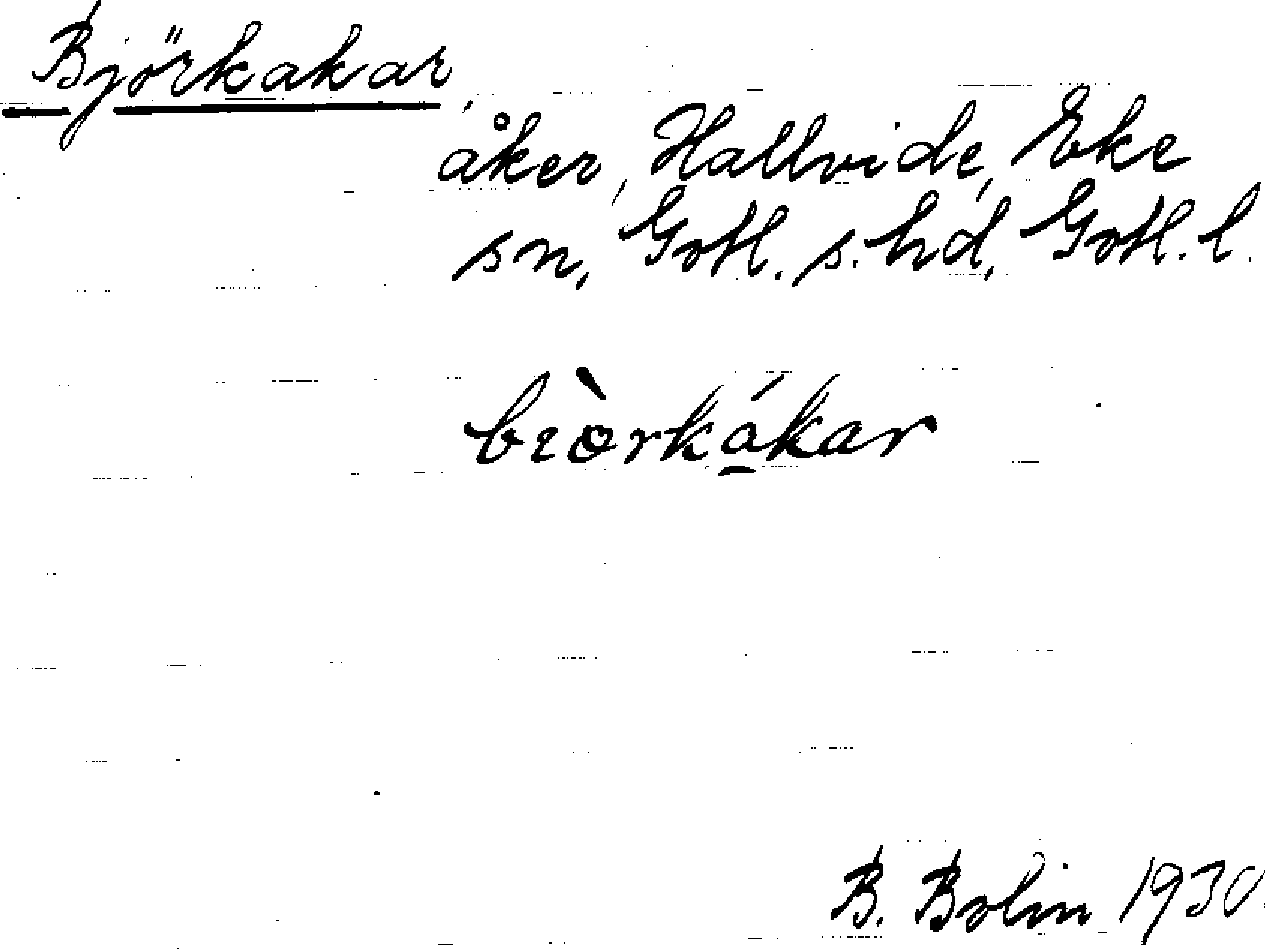 Björkakar,
åker, Hallvide, Eke
sn, Gotl. s. hd, Gotl. l.
bɪòrká̱kar
B. Bolin 1930.